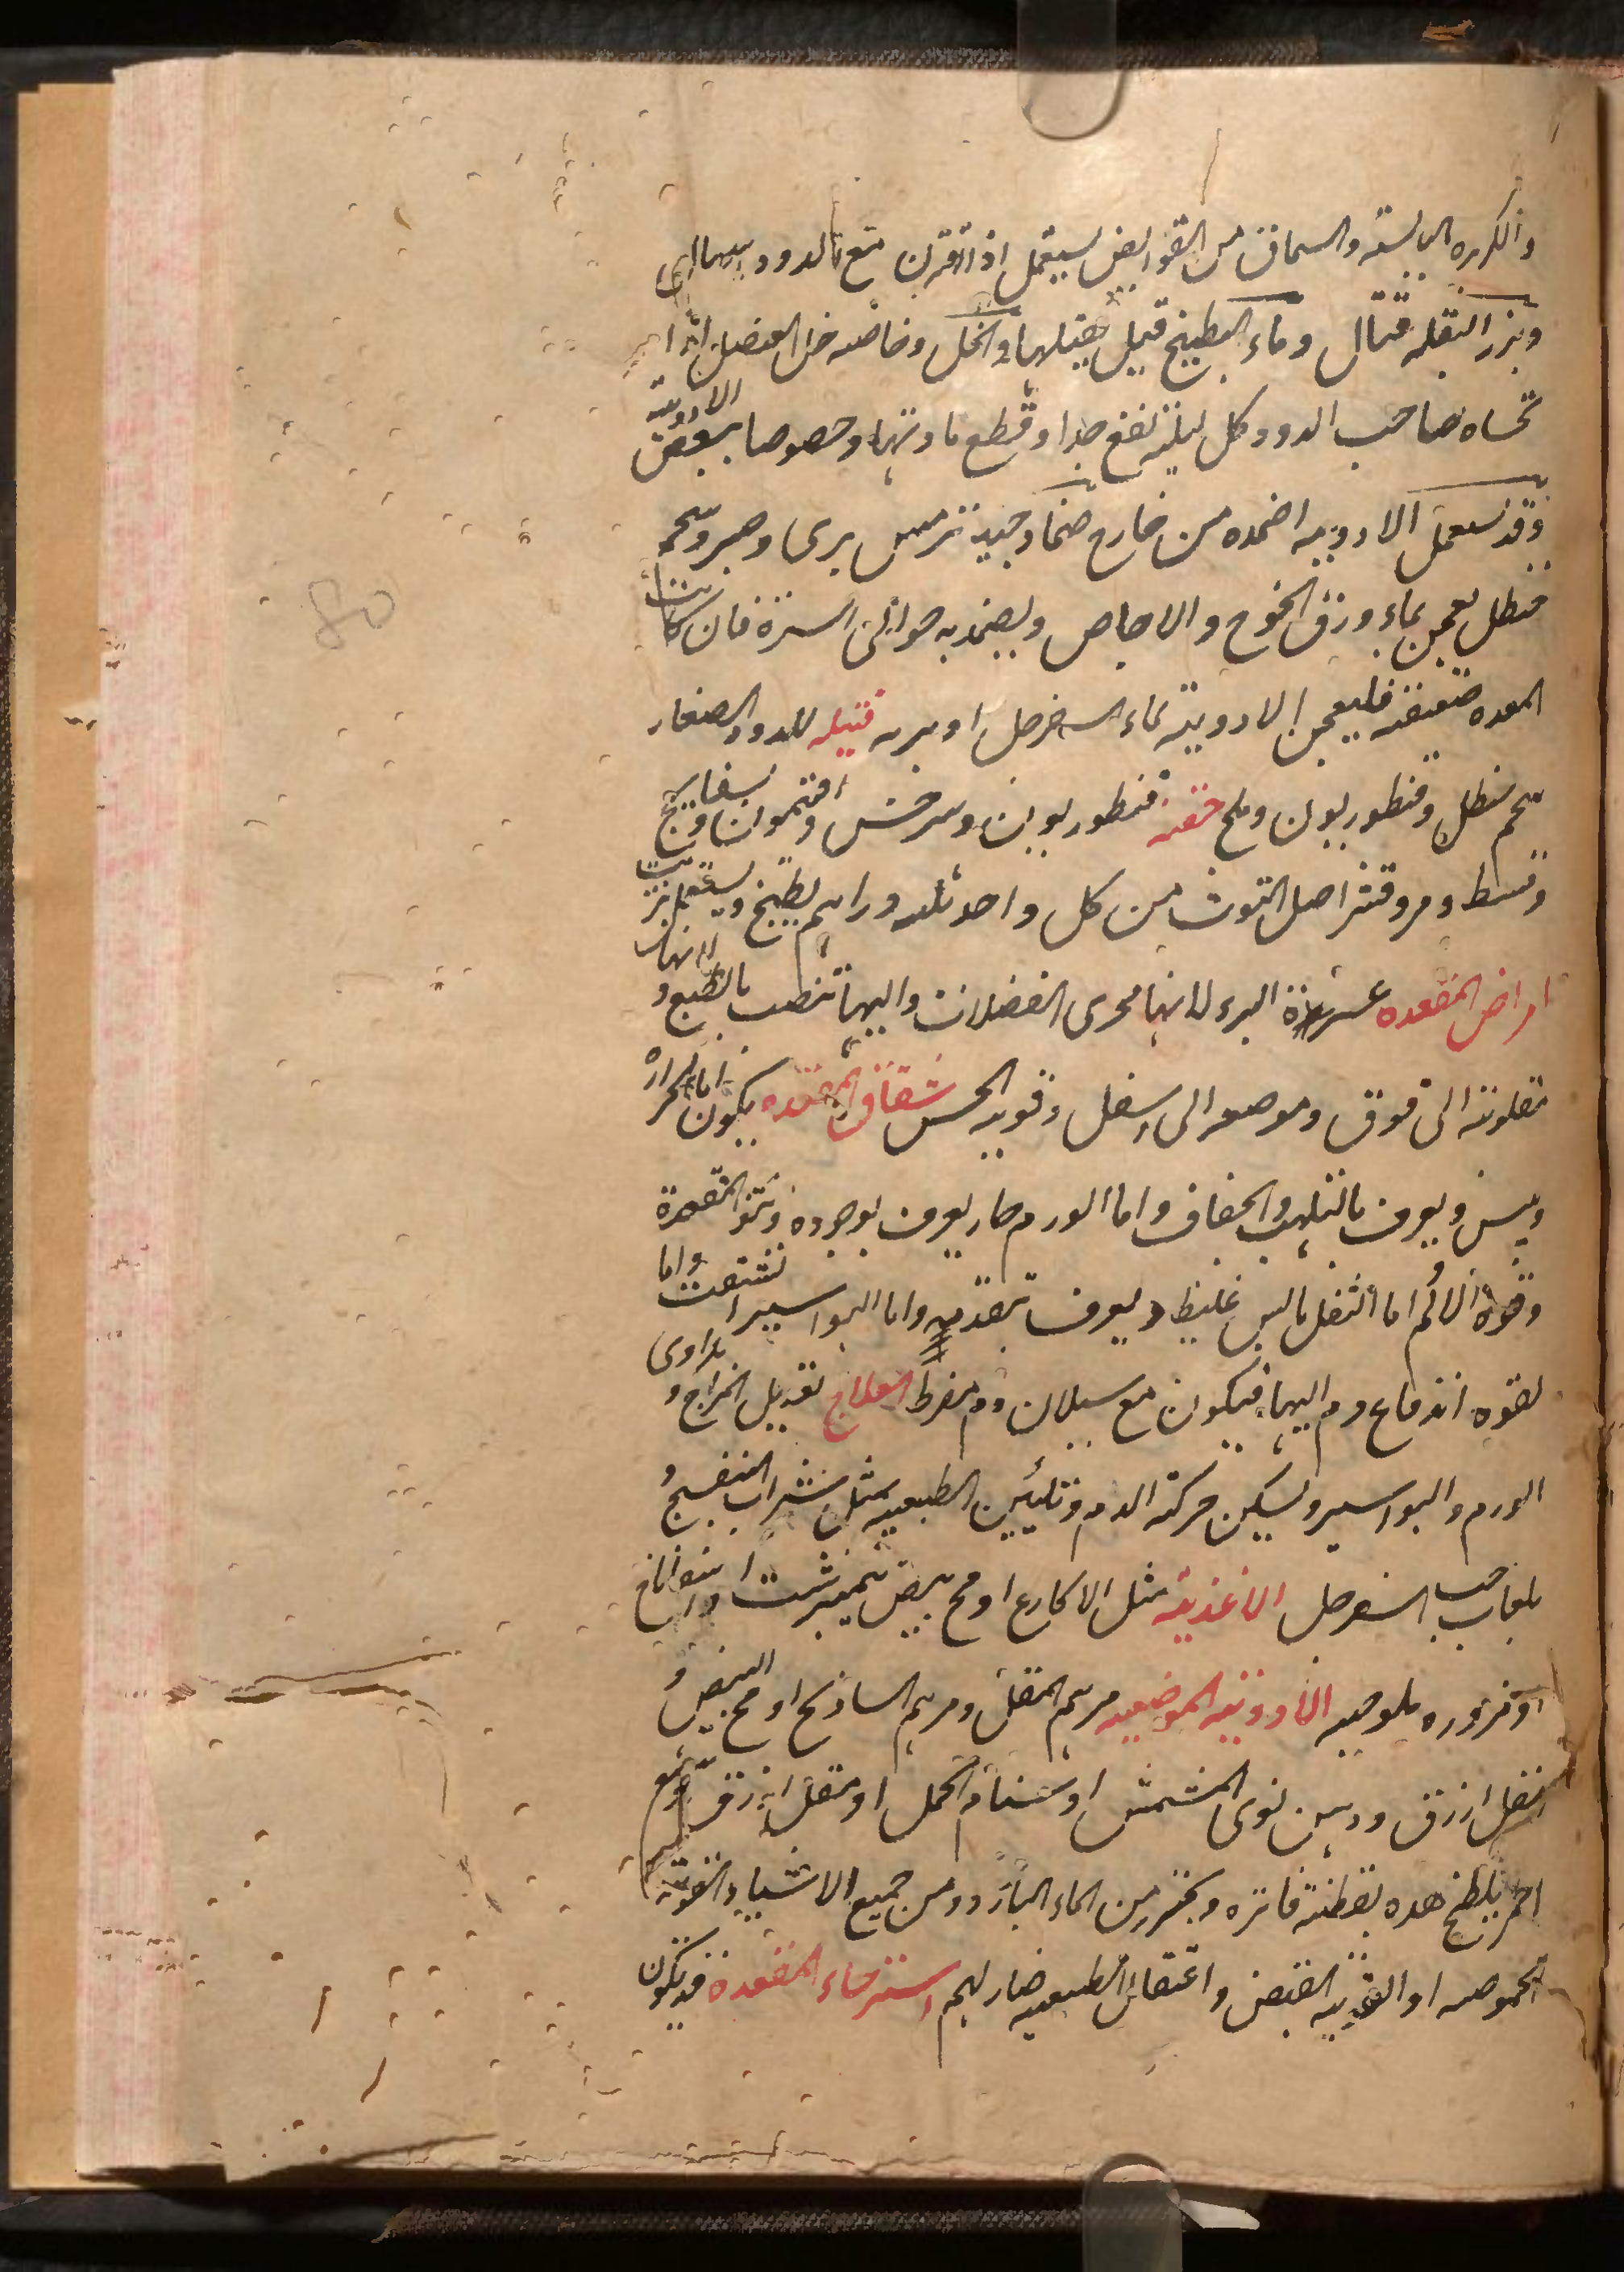 والكزبره اليابسة والسماق من القوابض يستعمل اذا اقترن مع الدود اسهال
وبزر البقله قتال وماء البطيخ قيل يقتلها والخل وخاصه خل العنصل اذا
تحساه صاحب الدود كل ليلة نفع جدا وقطع مادتها وخصوصا ببعض الادوية
وقد تستعمل الادويه اضمده من خارج ضماد جيد ترمس بري وصبر وشحم
حنظل يعجن بماء ورق الخوخ والاجاص ويضمد به حوالى السرة فان كانت
المعده ضعيفه فليعجن الادوية بماء السفرجل او بربه فتيله للدود الصغار
شحم حنظل وقنطوريون وملح حقنه قنطوريون وسرخس وافتيمون وبسفايج
وقسط ومر وقشر اصل التوث من كل واحد ثلثه دراهم يطبخ ويستعمل بزيت
امراض المقعده عسرة البرء لانها مجرى الفضلات واليها تنصب بالطبع ولانها
مقلوبة الى فوق وموضعها الى اسفل وقويه الحس شقاق المقعده يكون اما لحرارة
ويبس ويعرف بالتلهب والجفاف واما لورم حار يعرف بوجوده ونتو المقعدة
وقوة الالم اما لثفل يابس غليظ ويعرف بتقدمه واما لبواسير انشقت واما
لقوه اندفاع دم اليها فيكون مع سيلان دم مفرط العلاج تعديل المزاج ويداوى
الورم والبواسير وتسكين حركة الدم وتليين الطبيعيه بمثل شراب البنفسج و
بلعاب حب السفرجل الاغذية مثل الاكارع او مح بيض نيمبرشت او اسفاناخ
او مزوره ملوخيه الادويه الموضعيه مرهم المقل ومرهم الساذج او مح البيض و
مقل ازرق ودهن نوى المشمش او سنام الجمل او مقل ازرق وشمع
احمر يلطخ هده بقطنة فاتره ويحترز من الماء البارد ومن جميع الاشياء القويه
الحموضه او القويه القبض واعتقال الطبيعيه ضار لهم استرخاء المقعدة قد يكون